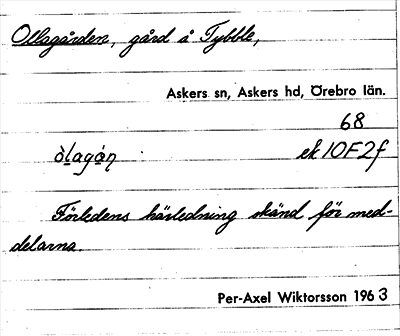 Ollagården, gård å Tybble,
Askers sn, Askers hd, Örebro län.
68
ò̀lagán ek 10F2f
Förledens härledning okänd för med-
delarna.
Per-Axel Wiktorsson 1963